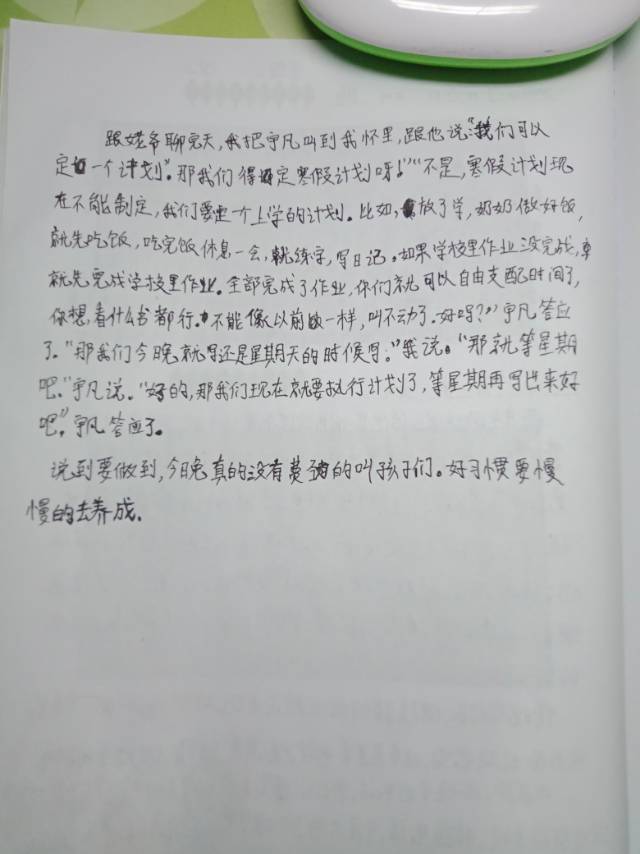 跟姥爷聊完天,我把宇凡叫到我怀里,跟他说“我们可以
定一个计划”。那我们得定寒假计划呀!”“不是,寒假计划现
在不能制定,我们要定一个上学的计划。比如,放了学,奶奶做好饭,
就先吃饭,吃完饭休息一会,就练字,写日记。如果学校里作业没完成,
就先完成学校里作业。全部完成了作业,你们就可以自由支配时间了,
你想,看什么书都行。不能像以前一样,叫不动了.好吗?”宇凡答应
了。“那我们今晚就写还是星期天的时候写。”我说。“那就等星期
吧.”宇凡说。“好的,那我们现在就要执行计划了,等星期再写出来好
吧”,宇凡答应了。
说到要做到,今晚真的没有费劲的叫孩子们。好习惯要慢
慢的去养成.